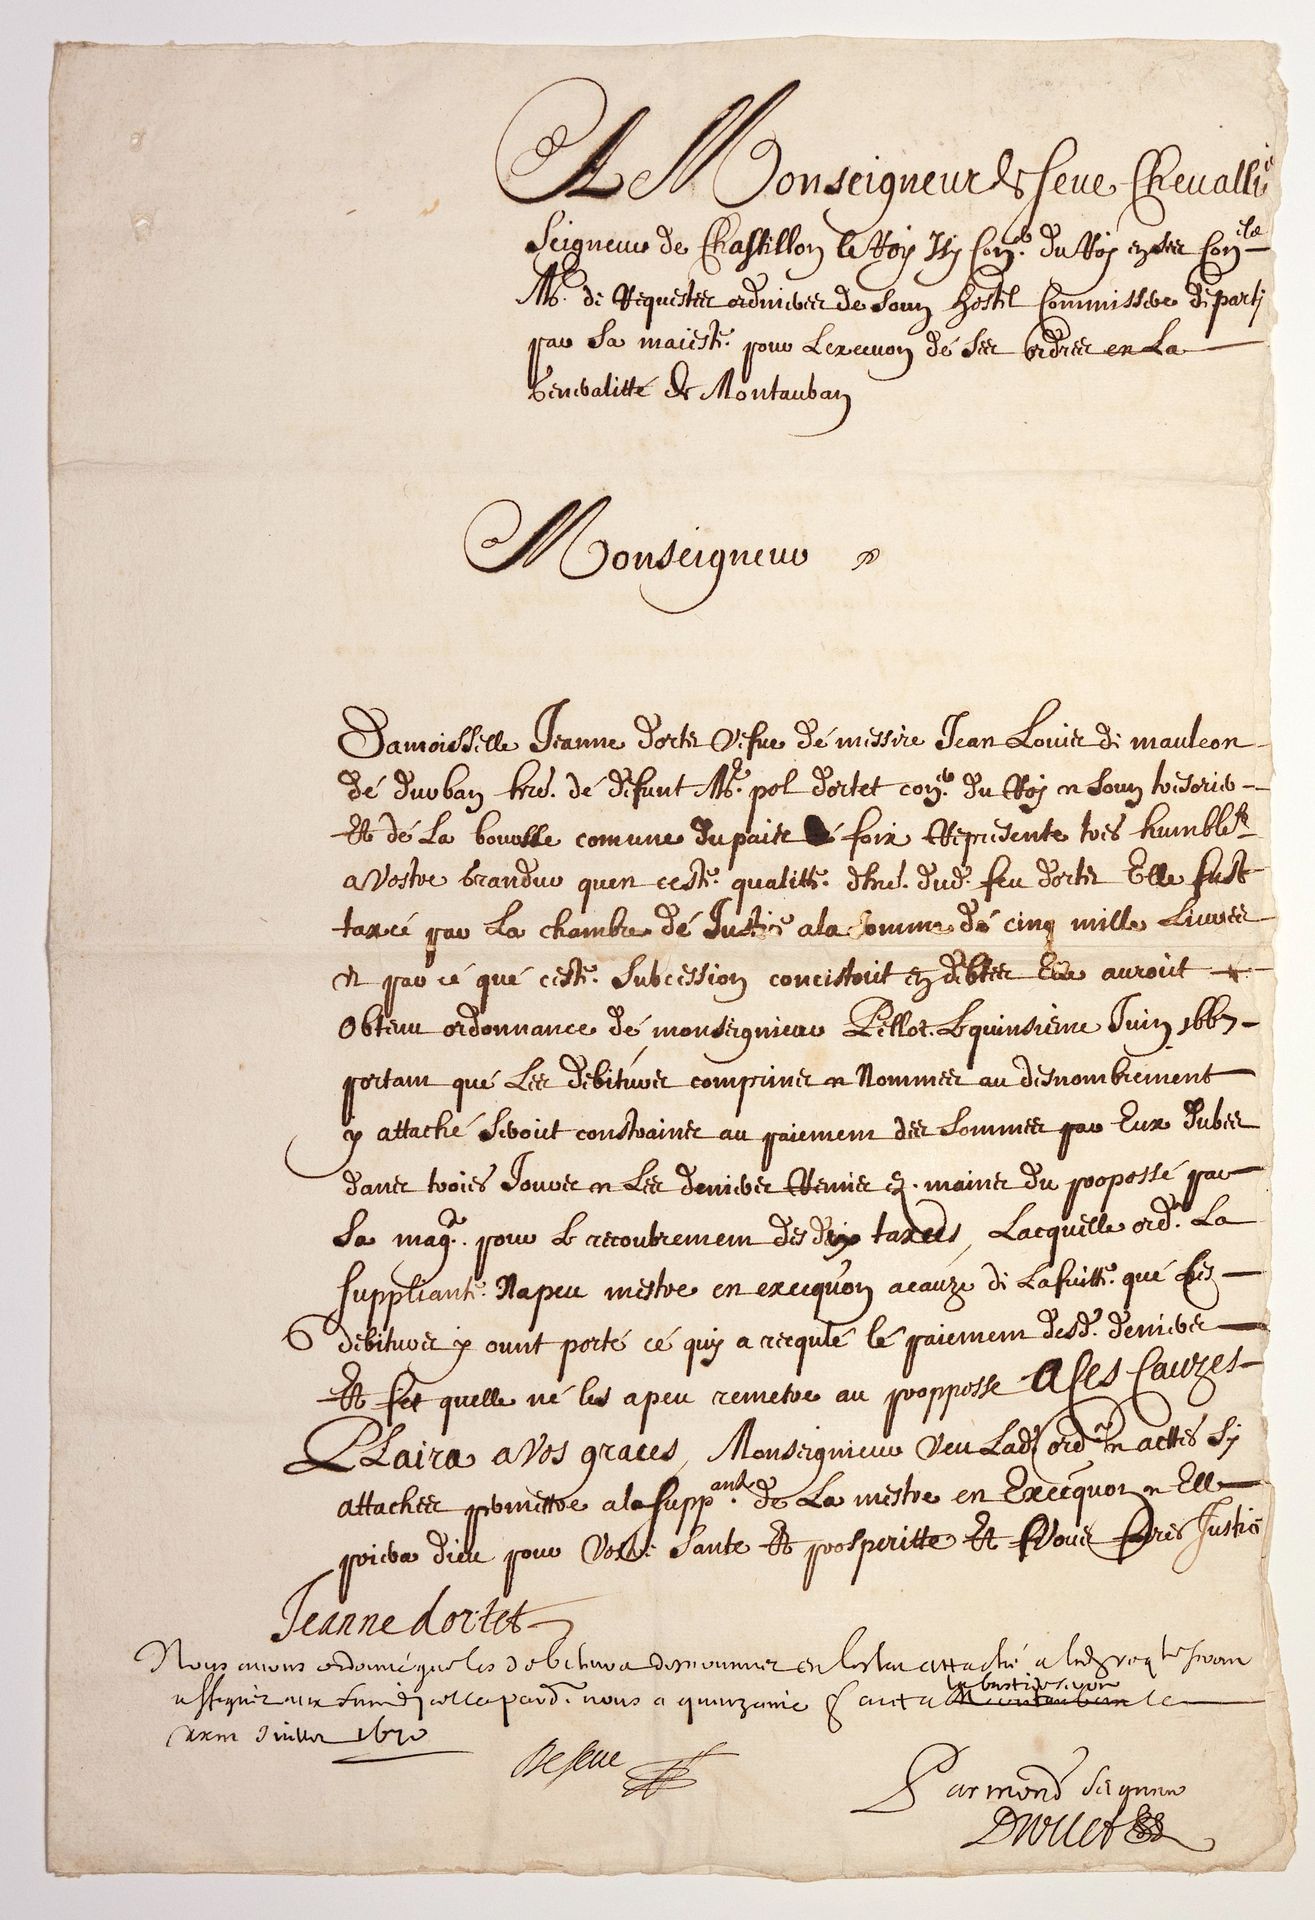 A Monseigneur de Seve Chevallie
Seigneur de Chastillon le Roy Con.er du Roy en ses Con.els
M.e de Requestes ordinieres de soun hostel Commissere departi
par Sa maieste. pour Lexecuon dé ses ordres en La
Generalitté de Montauban
Monseigneur
Damoisselle Jeanne dortet vefue dé messire Jean Louies de mauleon
dé durban hre. dé défunt M.e pol dortet con.er du Roy et soun tresorier
Et dé La bourse comune du paise dé foix Represente tres humble.t
a Vostre Grandur quen ceste. qualitté. dhre. dud. feu dortet Elle fust
taxcé par La chambre dé Justice a la somme dé cinq mille Liures
et par cé qué ceste. Subcession concistoit en debtes Elle auroit
Obtenu ordonnance dé monseignieur Pellot. Le quinsieme Juin 1667
portant qué Les débitures comprinses et Nommes au desnombrement
y attaché Seroit constraines au paiement des Sommes par Eux dubes
dans troies Jours et Les denieres Remies es. maines du propossé par
Sa mag.te pour Le recoubrement des dix taxces, Lacquelle ord.ce La
suppliante. Napeu mestre en execquon acauze di La fuitte. qué les
debitures y ount porté cé quy a recqulé lé paiement desd. denieres
Et fet quelle né les apeu remetre au propposse A ces Cauzes
PLaira a Vos graces, Monseignieur Veu Lad. ord.ce et actes sy
attaches permettre a la supp.ante de La mestre en Execquon et Elle
priera dieu pour Vostre Sante Et prosperitte Et Vous feres Justice
Jeanne dortet
Nous auons ordonné que les debiteurs desnommes en lestat attaché a lad. reqte seront
assignes aux fins dicelle pard. nous a quinzaine fait a
la bastide seron
Montauban le
xxiii Juillet 1670
De Seue
Par mond Seigneur
Drouet